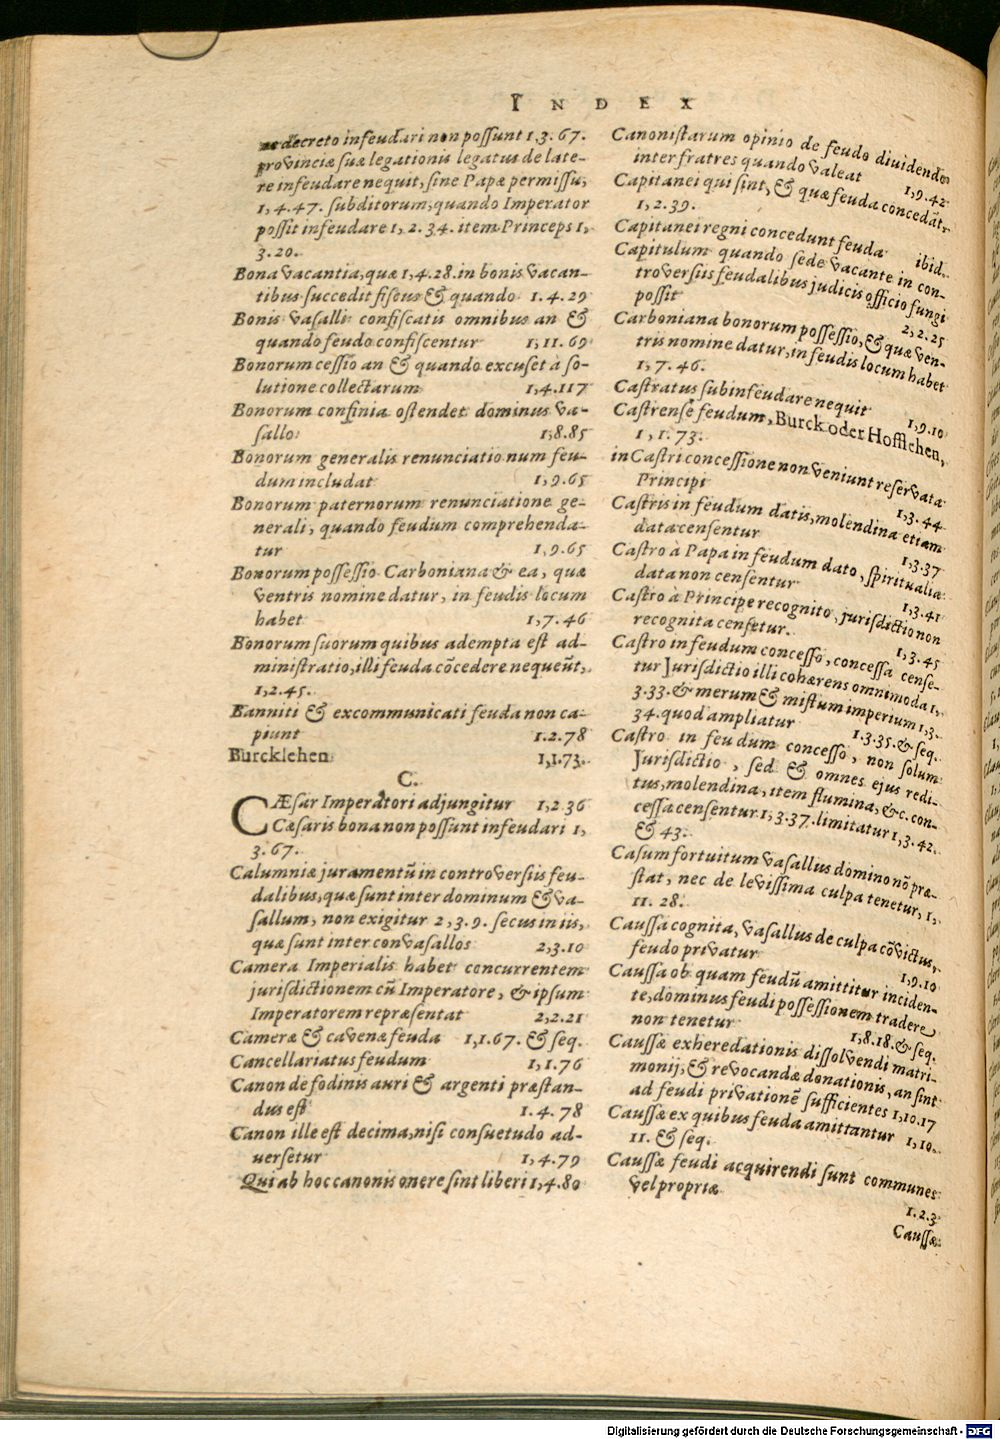 INDEX
decreto infeudari non possunt 1,3.67.
provinciæ suæ legationis legatus de late-
re infeudare nequit, sine Papæ permissu,
1,4.47. subditorum, quando Imperator
possit infeudare 1,2.34. item Princeps 1,
3.20.
Bona vacantia, quæ 1,4.28. in bonis vacan-
tibus succedit fiscus & quando 1.4.29
Bonis vasalli confiscatis omnibus an &
quando feudo confiscentur 1,11.69
Bonorum cessio an & quando excuset à so-
lutione collectarum 1,4.117
Bonorum confinia ostendet dominus va-
sallo 1,8.85
Bonorum generalis renunciatio num feu-
dum includat 1,9.65
Bonorum paternorum renunciatione ge-
nerali, quando feudum comprehenda-
tur 1,9.65
Bonorum possessio Carboniana & ea, quæ
ventris nomine datur, in feudis locum
habet 1,7.46
Bonorum suorum quibus adempta est ad-
ministratio, illi feuda cōcedere nequeūt,
1,2.45.
Banniti & excommunicati feuda non ca-
piunt 1.2.78
Burcklehen 1,1.73.
C.
CÆsar Imperatori adjungitur 1,2.36
Cæsaris bona non possunt infeudari 1,
3.67.
Calumniæ juramentū in controversiis feu-
dalibus, quæ sunt inter dominum & va-
sallum, non exigitur 2,3.9. secus in iis,
quæ sunt inter convasallos 2,3.10
Camera Imperialis habet concurrentem
jurisdictionem cū Imperatore, & ipsum
Imperatorem repræsentat 2,2.21
Cameræ & cavenæ feuda 1,1.67. & seq.
Cancellariatus feudum 1,1.76
Canon de fodinis auri & argenti præstan-
dus est 1.4.78
Canon ille est decima, nisi consuetudo ad-
versetur 1,4.79
Qui ab hoc canonis onere sint liberi 1,4.80
Canonistarum opinio de feudo dividendo
inter fratres quando valeat 1,9.42
Capitanei qui sint, & quæ feuda concedāt,
1,2.39.
Capitanei regni concedunt feuda ibid.
Capitulum quando sede vacante in con-
troversiis feudalibus judicis officio fungi
possit 2,2.25
Carboniana bonorum possessio, & quæ ven-
tris nomine datur, in feudis locum habet
1,7.46.
Castratus subinfeudare nequit 1,9.10
Castrense feudum, Burck oder Hofflehen,
1,1.73.
in Castri concessione non veniunt reservata
Principi 1,3.44
Castris in feudum datis, molendina etiam
data censentur 1,3.37
Castro à Papa in feudum dato, spiritualia
data non censentur 1,3.41
Castro à Principe recognito, jurisdictio non
recognita censetur. 1,3.45
Castro in feudum concesso, concessa cense-
tur Jurisdictio illi cohærens omnimoda 1,
3.33. & merum & mistum imperium 1,3.
34. quod ampliatur 1.3.35. & seq.
Castro in feudum concesso, non solum
Jurisdictio, sed & omnes ejus redi-
tus, molendina, item flumina, &c. con-
cessa censentur 1,3.37. limitatur 1,3.42.
& 43.
Casum fortuitum vasallus domino nō præ-
stat, nec de levissima culpa tenetur, 1,
11.28.
Caussa cognita, vasallus de culpa cōvictus,
feudo privatur 1,9.10
Caussa ob quam feudū amittitur inciden-
te, dominus feudi possessionem tradere
non tenetur 1,8.18. & seq.
Caussæ exheredationis dissolvendi matri-
monij, & revocandæ donationis, an sint
ad feudi privationē sufficientes 1,10.17
Caussæ ex quibus feuda amittantur 1,10.
11. & seq.
Caussæ feudi acquirendi sunt communes
vel propriæ 1.2.3
Caussæ
Digitalisierung gefördert durch die Deutsche Forschungsgemeinschaft - DFG